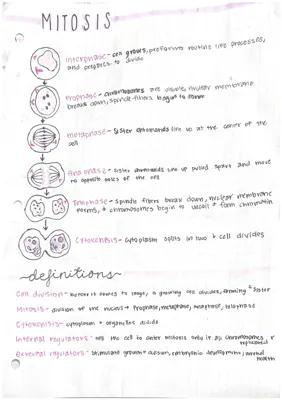 MITOSIS
Interphase - cell grows, preforms routine life processes,
and prepares to divide
Prophase - chromosomes are visible, nuclear membrane
breaks down, spindle fibers begin to form
metaphase - Sister chromatids line up at the center of the
cell
Anaphase - Sister chromatids pulled apart and move
to opposite sides of the cell
Telophase - spindle fibers break down, nuclear membrane
forms, + chromosomes begin to uncoil + form chromatin
Cytokenisis - cytoplasm splits in two + cell divides
definitions
Cell division - before it comes to large, a growing cell divides, forming 2 sister
Mitosis - division of the nucleus → Prophase, metaphase, anaphase, telophase
Cytokenisis - cytoplasm + organelles divide
Internal regulators - tell the cell to enter mitosis only if all chromosomes r
replicated
External regulators - Stimulate growth + division, embryonic development, wound
health